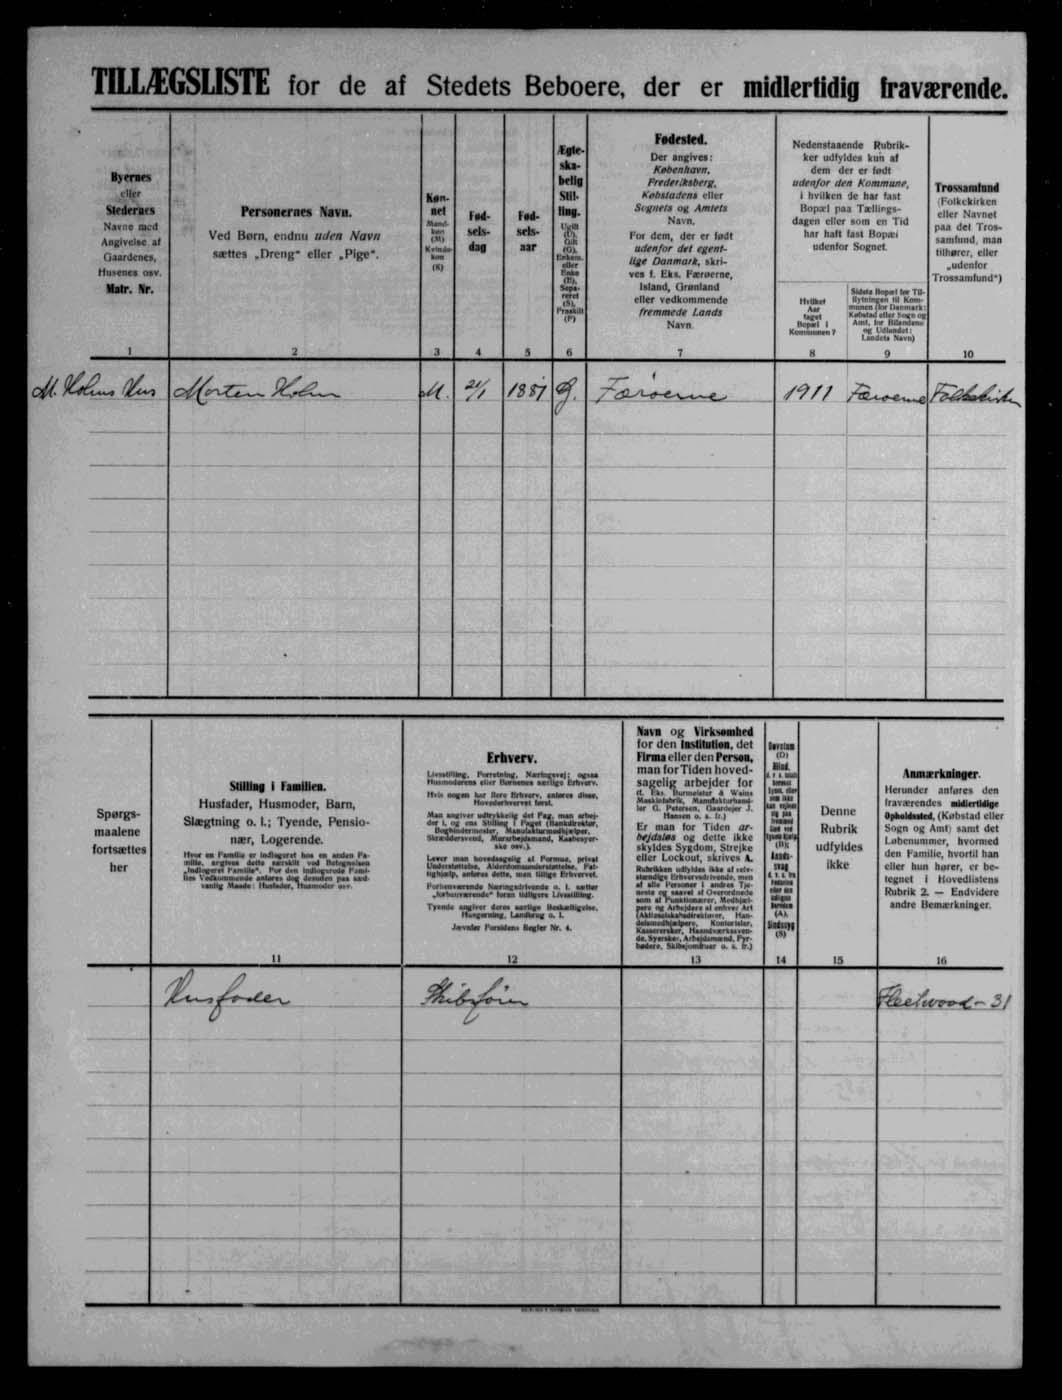 TILLÆGSLISTE for de af Stedets Beboere, der er midlertidig fraværende.
Byernes
eller
Stedernes
Navne med
Angivelse af
Gaardenes,
Husenes osv.
Matr. Nr.
1
Personernes Navn.
Ved Børn, endnu uden Navn
sættes „Dreng“ eller „Pige“.
2
Køn-
net
Mand-
køn
(M)
Kvinde-
køn
(K)
3
Fød-
sels-
dag
4
Fød-
sels-
aar
5
Ægte-
ska-
belig
Stil-
ling.
Ugift
(U),
Gift
(G),
Enkem.
eller
Enke
(E),
Sepa-
reret
(S),
Fraskilt
(F)
6
Fødested.
Der angives:
København,
Frederiksberg,
Købstadens eller
Sognets og Amtets
Navn.
For dem, der er født
udenfor det egent-
lige Danmark, skri-
ves f. Eks. Færøerne,
Island, Grønland
eller vedkommende
fremmede Lands
Navn.
7
Nedenstaaende Rubrik-
ker udfyldes kun af
dem der er født
udenfor den Kommune,
i hvilken de har fast
Bopæl paa Tællings-
dagen eller som en Tid
har haft fast Bopæl
udenfor Sognet.
Hvilket
Aar
taget
Bopæl i
Kommunen?
8
Sidste Bopæl før Til-
flytningen til Kom-
munen (for Danmark:
Købstad eller Sogn og
Amt, for Bilandene
og Udlandet:
Landets Navn)
9
Trossamfund
(Folkekirken
eller Navnet
paa det Tros-
samfund, man
tilhører, eller
„udenfor
Trossamfund“)
10
M. Holms Hus Morten Holm M. 21/1 1881 G. Færøerne 1911 Færøerne Folkekirken
Spørgs-
maalene
fortsættes
her
Stilling i Familien.
Husfader, Husmoder, Barn,
Slægtning o. l.; Tyende, Pensio-
nær, Logerende.
Hvor en Familie er indlogeret hos en anden Fa-
milie, angives dette særskilt ved Betegnelsen
„Indlogeret Familie“. For den indlogerede Fami-
lies Vedkommende anføres dog desuden paa sæd-
vanlig Maade: Husfader, Husmoder osv.
11
Erhverv.
Livsstilling, Forretning, Næringsvej; ogsaa
Husmoderens eller Børnenes særlige Erhverv.
Hvis nogen har flere Erhverv, anføres disse,
Hovederhvervet først.
Man angiver udtrykkelig det Fag, man arbej-
der i, og ens Stilling i Faget (Bankdirektør,
Bogbindermester, Manufakturmedhjælper,
Skræddersvend, Murarbejdsmand, Kaabesyer-
ske osv.).
Lever man hovedsagelig af Formue, privat
Understøttelse, Alderdomsunderstøttelse, Fat-
tighjælp, anføres dette, men tillige Erhvervet.
Forhenværende Næringsdrivende o. l. sætter
„forhenværende“ foran tidligere Livsstilling.
Tyende angiver deres særlige Beskæftigelse,
Husgerning, Landbrug o. l.
Jævnfør Forsidens Regler Nr. 4.
12
Navn og Virksomhed
for den Institution, det
Firma eller den Person,
man for Tiden hoved-
sagelig arbejder for
(f. Eks. Burmeister & Wains
Maskinfabrik, Manufakturhand-
ler G. Petersen, Gaardejer J.
Hansen o. s. fr.)
Er man for Tiden ar-
bejdsløs og dette ikke
skyldes Sygdom, Strejke
eller Lockout, skrives A.
Rubrikken udfyldes ikke af selv-
stændige Erhvervsdrivende, men
af alle Personer i andres Tje-
neste og saavel af Overordnede
som af Funktionærer, Medhjæl-
pere og Arbejdere af enhver Art
(Aktieselskabsdirektører, Han-
delsmedhjælpere, Kontorister,
Kasserersker, Haandværkssven-
de, Syersker, Arbejdsmænd, Fyr-
bødere, Skibsjomfruer o. s. fr.)
13
Døvstum
(D)
Blind,
(B);
Aands-
svag
(A),
Sindssyg
(S)
14
Denne
Rubrik
udfyldes
ikke
15
Anmærkninger.
Herunder anføres den
fraværendes midlertidige
Opholdssted, (Købstad eller
Sogn og Amt) samt det
Løbenummer, hvormed
den Familie, hvortil han
eller hun hører, er be-
tegnet i Hovedlistens
Rubrik 2. — Endvidere
andre Bemærkninger.
16
Husfader Skibsfører Fleetwood - 31